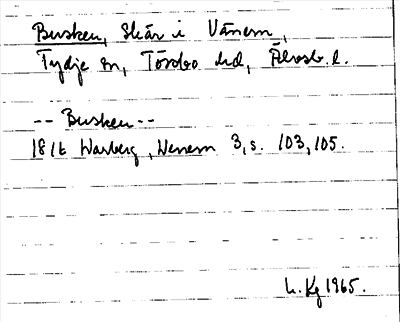 Busken, Skär i Vänern,
Tydje sn, Tössbo hd, Älvsb. l.
-- Busken --
Warberg, Wenern 3, s. 103, 105.
L. Kg 1965.